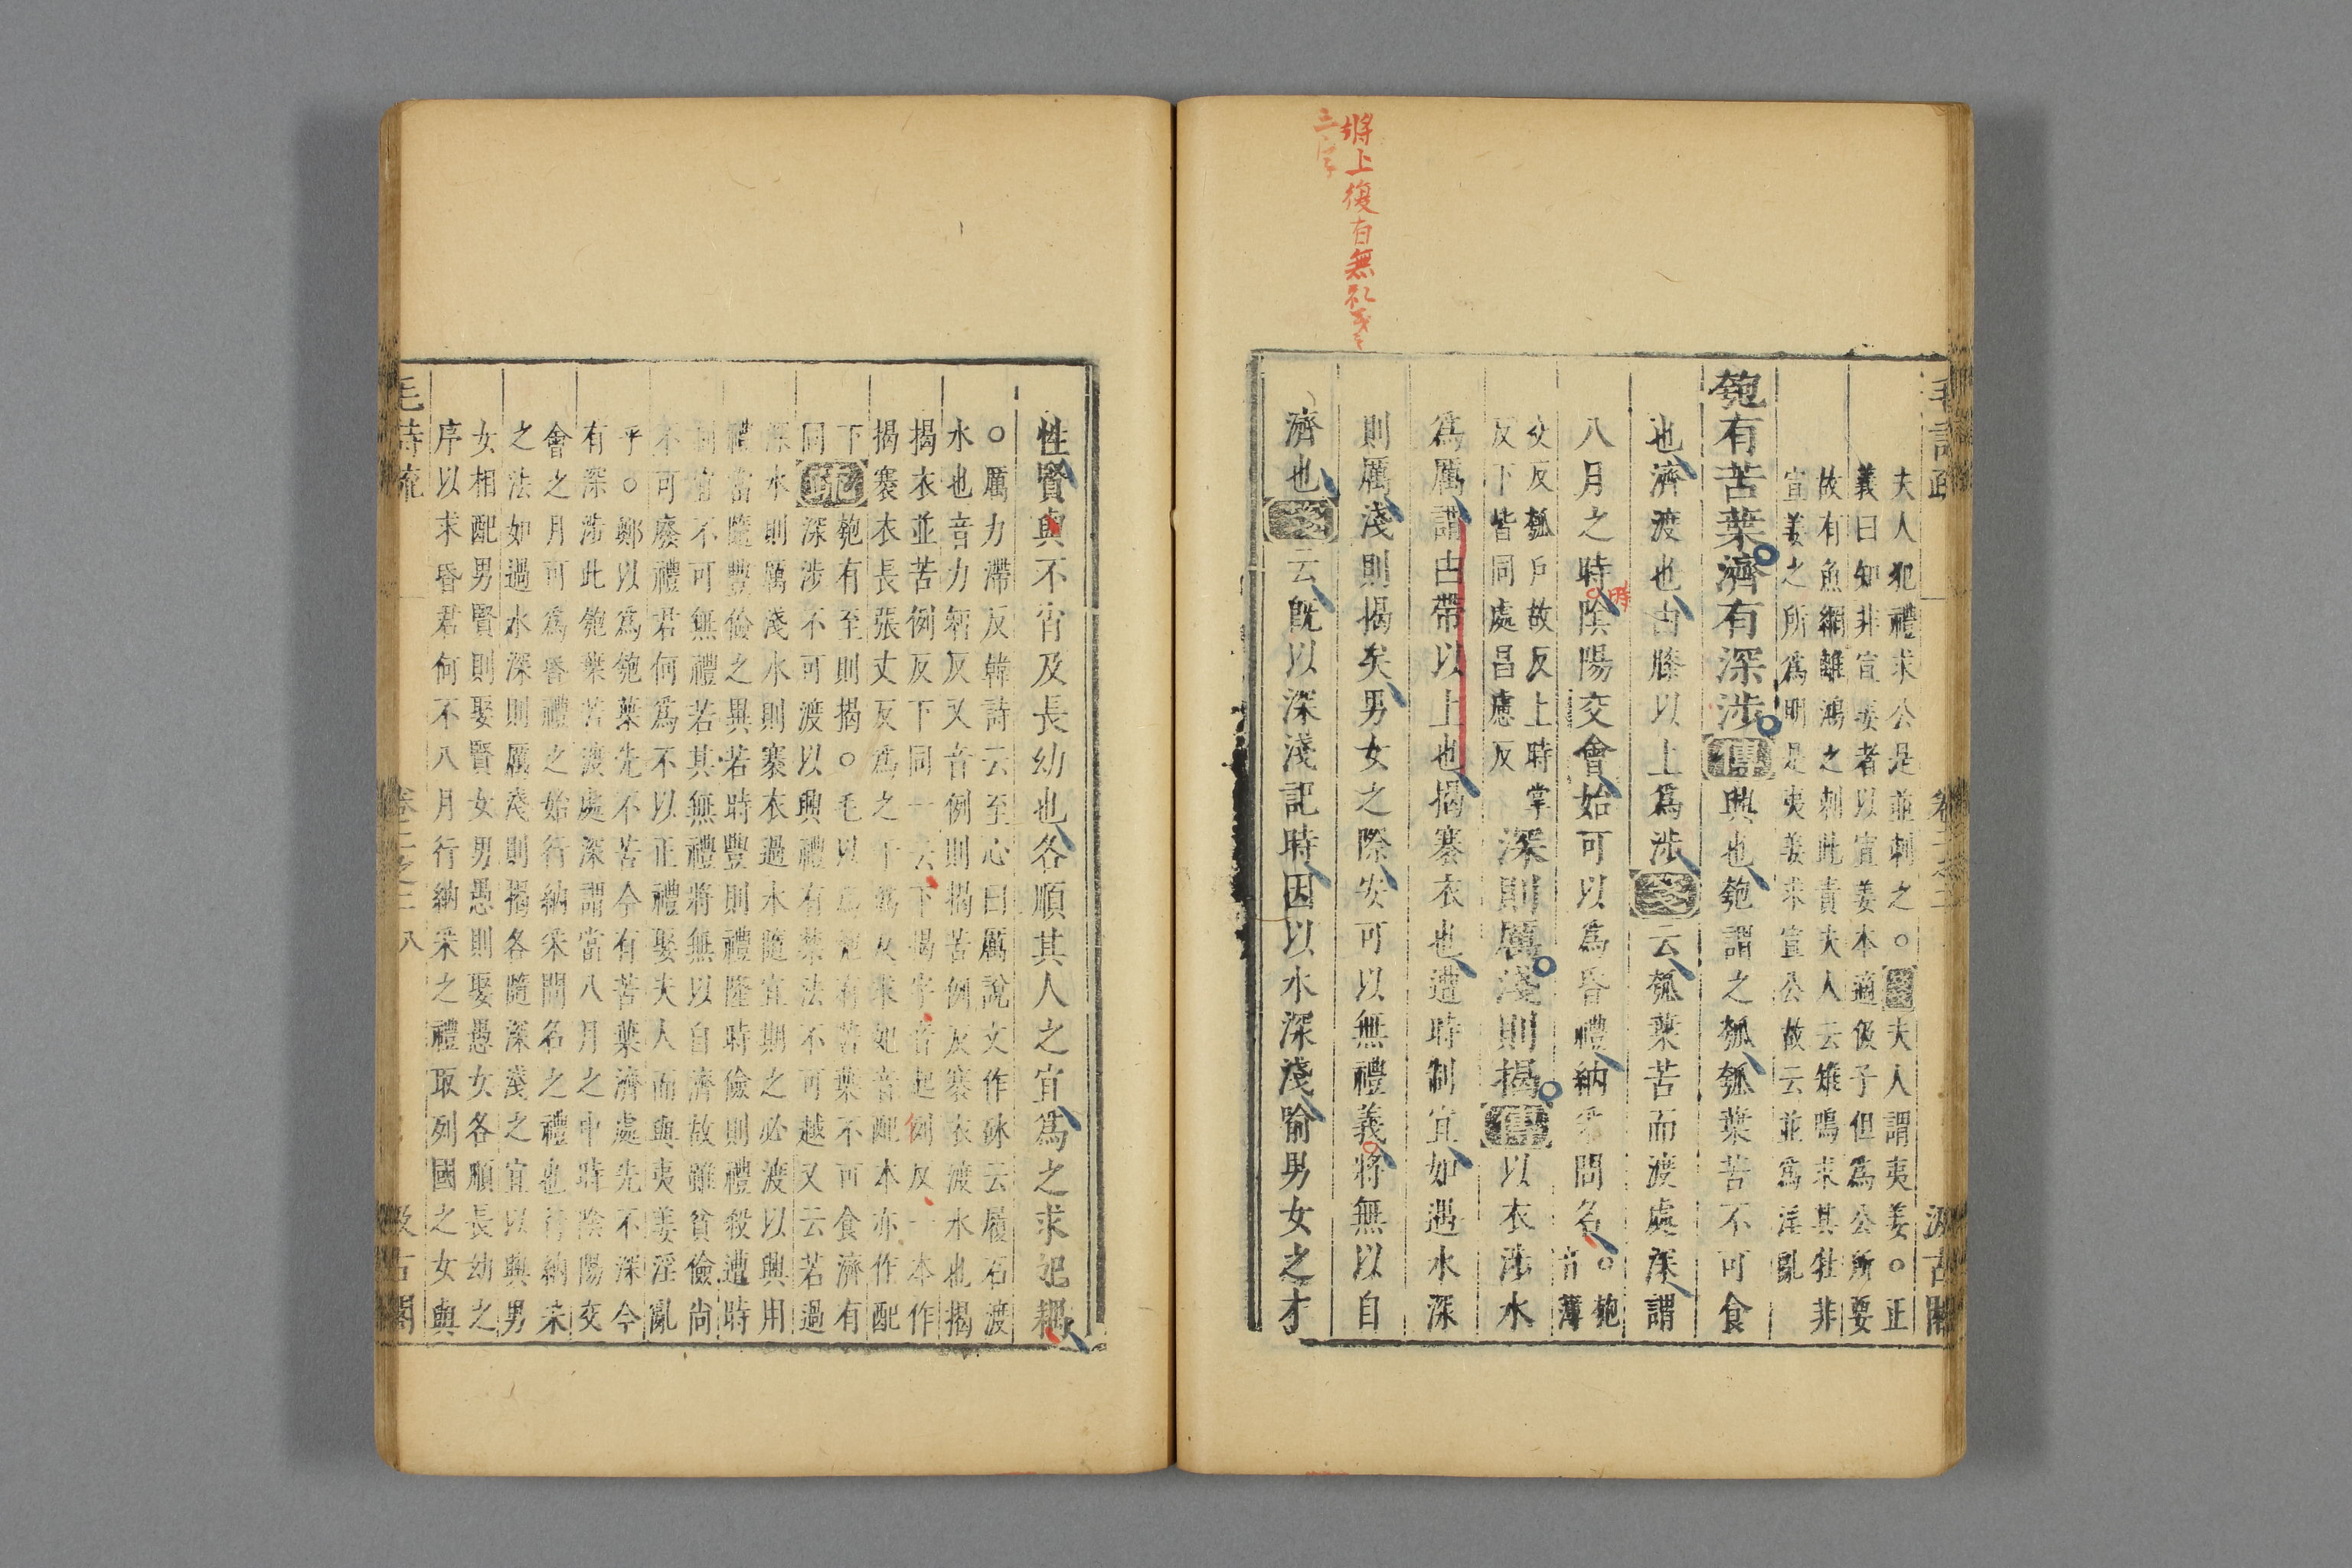 將上復有無礼義
三字
毛詩疏
卷二之二
汲古閣
夫人犯禮求公是並刺之○箋夫人謂夷姜○正
義曰知非宣姜者以宣姜本適伋子但為公所要
故有魚網離鴻之刺此責夫人云雉鳴求其牡非
宣姜之所為明是夷姜求宣公故云並為淫亂
匏有苦葉濟有深涉傳興也匏謂之瓠瓠葉苦不可食
也濟渡也由膝以上為涉箋云瓠葉苦而渡處深謂
八月之時陰陽交會始可以為昏禮納采問名○匏
音薄
時
交反瓠戶故反上時掌
反下皆同處昌慮反
深則厲淺則揭傳以衣涉水
為厲謂由帶以上也揭褰衣也遭時制宜如遇水深
則厲淺則揭矣男女之際安可以無禮義將無以自
濟也箋云旣以深淺記時因以水深淺喻男女之才
性賢與不肖及長幼也各順其人之宜為之求妃耦
○厲力滯反韓詩云至心曰厲說文作砅云履石渡
水也音力智反又音例則揭苦例反褰衣渡水也揭
揭衣並苦例反下同一云下揭字音起例反一本作
揭褰衣長張丈反為之于偽反求妃音配本亦作配
下同疏匏有至則揭○毛以為匏有苦葉不可食濟有
深涉不可渡以興禮有禁法不可越又云若過
深水則厲淺水則褰衣過水隨宜期之必渡以興用
禮當隨豐儉之異若時豐則禮隆時儉則禮殺遭時
制宜不可無禮若其無禮將無以自濟故雖貧儉尚
不可廢禮君何為不以正禮娶夫人而與夷姜淫亂
乎○鄭以為匏葉先不苦今有苦葉濟處先不深今
有深涉此匏葉苦渡處深謂當八月之中時陰陽交
會之月可為昏禮之始行納采問名之禮也行納采
之法如過水深則厲淺則揭各隨深淺之宜以興男
女相配男賢則娶賢女男愚則娶愚女各順長幼之
序以求昏君何不八月行納采之禮取列國之女與
毛詩疏
卷二之二 八
汲古閣